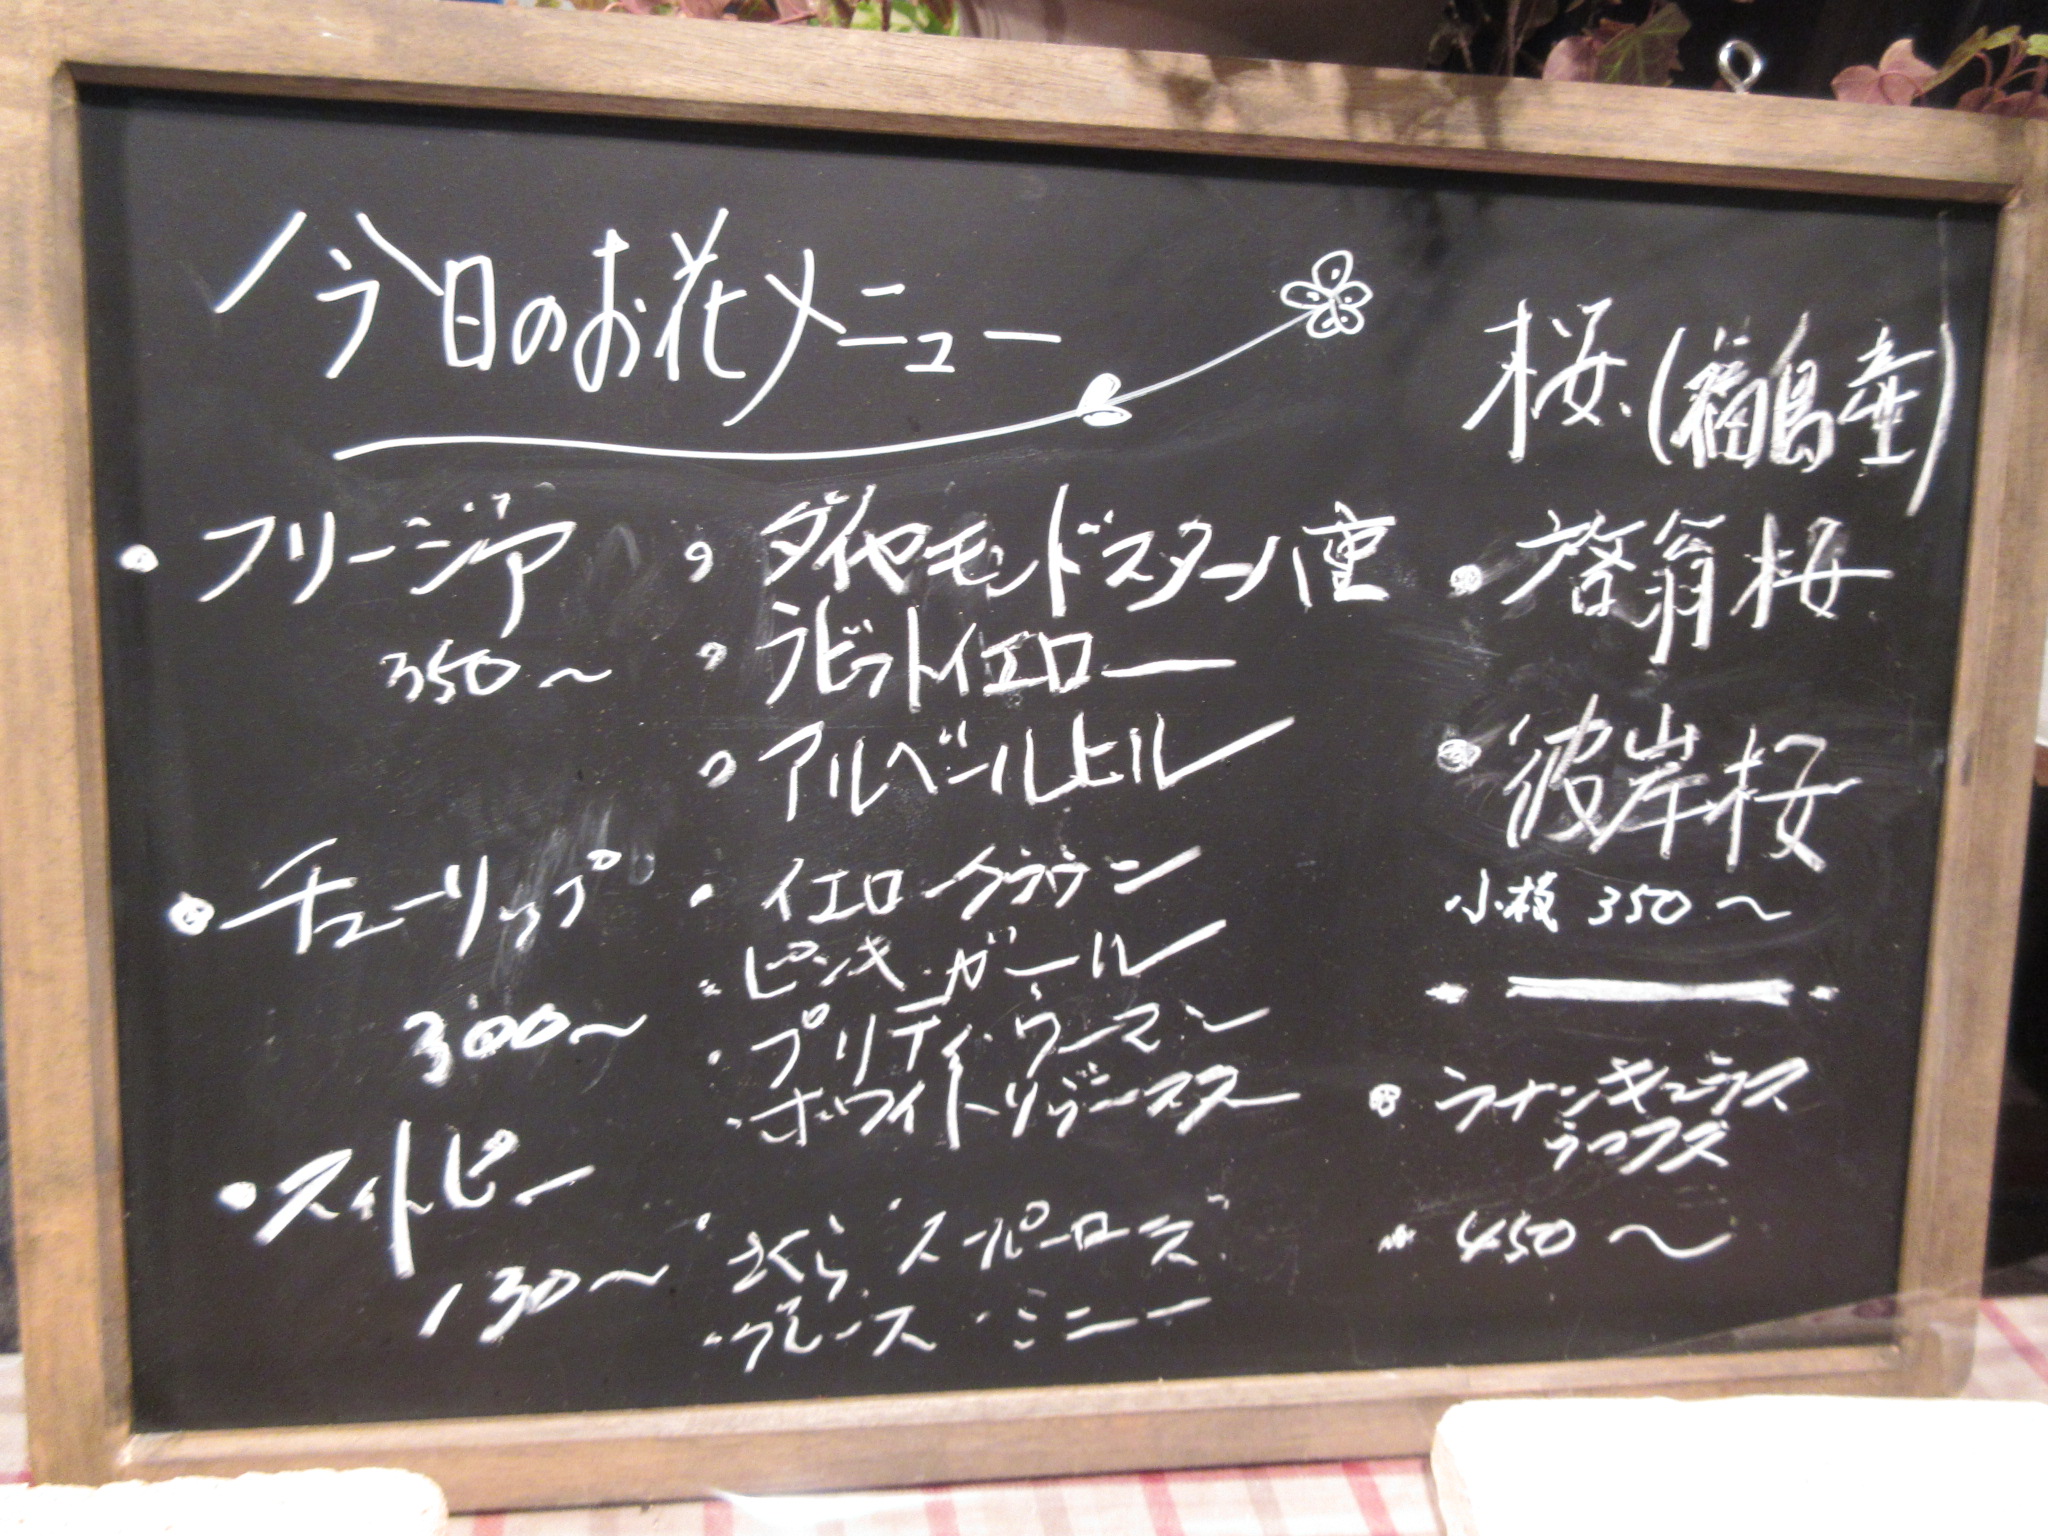 今日のお花メニュー
・フリージア
350〜
・ダイヤモンドスター八重
・ラビットイエロー
・アルベールヒル
・チューリップ
300〜
・イエロークラウン
・ピンキーガール
・プリティ・ウーマン
・ホワイトリバースス
・スイトピー
130〜
・さくら"スーパーローズ"
・グレース・ミニー
桜(福島産)
・啓翁桜
・彼岸桜
小枝 350〜
・ラナンキュラス
ラックス
450〜